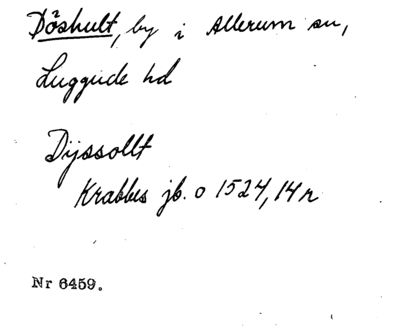 Döshult, by i Allerum sn,
Luggude hd
Dijssollt
Krabbes jb. o 1524, 14 r
Nr 6459.